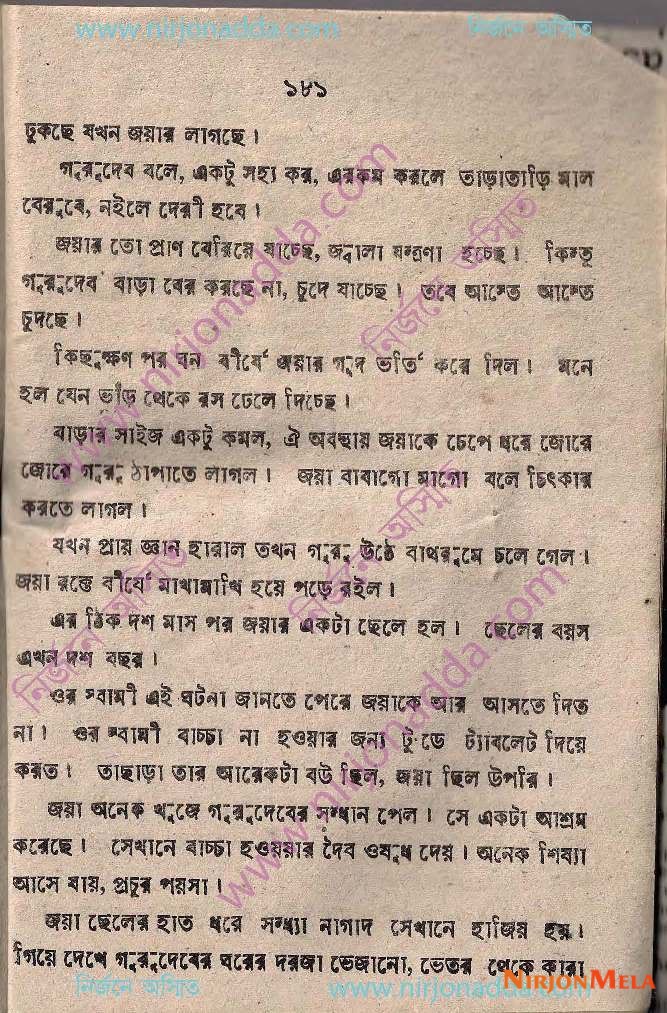 www.nirjonadda.com নির্জনে অস্মিত
১৮১
ঢুকছে যখন জয়ার লাগছে।
গুরুদেব বলে, একটু সহ্য কর, এরকম করলে তাড়াতাড়ি মাল
বেরুবে, নইলে দেরী হবে।
জয়ার তো প্রাণ বেরিয়ে যাচ্ছে, জ্বালা যন্ত্রণা হচ্ছে। কিন্তু
গুরুদেব বাড়া বের করছে না, চুদে যাচ্ছে। তবে আস্তে আস্তে
চুদছে।
কিছুক্ষণ পর ঘন বীর্যে জয়ার গুদ ভর্তি করে দিল। মনে
হল যেন ভাঁড় থেকে রস ঢেলে দিচ্ছে।
বাড়ার সাইজ একটু কমল, ঐ অবস্থায় জয়াকে চেপে ধরে জোরে
জোরে গুরু ঠাপাতে লাগল। জয়া বাবাগো মাগো বলে চিৎকার
করতে লাগল।
যখন প্রায় জ্ঞান হারাল তখন গুরু উঠে বাথরুমে চলে গেল।
জয়া রক্তে বীর্যে মাখামাখি হয়ে পড়ে রইল।
এর ঠিক দশ মাস পর জয়ার একটা ছেলে হল। ছেলের বয়স
এখন দশ বছর।
ওর স্বামী এই ঘটনা জানতে পেরে জয়াকে আর আসতে দিত
না। ওর স্বামী বাচ্চা না হওয়ার জন্য টুডে ট্যাবলেট দিয়ে
করত। তাছাড়া তার আরেকটা বউ ছিল, জয়া ছিল উপরি।
জয়া অনেক খুঁজে গুরুদেবের সন্ধান পেল। সে একটা আশ্রম
করেছে। সেখানে বাচ্চা হওয়য়ার দৈব ওষুধ দেয়। অনেক শিষ্যা
আসে যায়, প্রচুর পয়সা।
জয়া ছেলের হাত ধরে সন্ধ্যা নাগাদ সেখানে হাজির হয়।
গিয়ে দেখে গুরুদেবের ঘরের দরজা ভেজানো, ভেতর থেকে কারা
নির্জনে অস্মিত www.nirjonadda.com NIRJONMELA